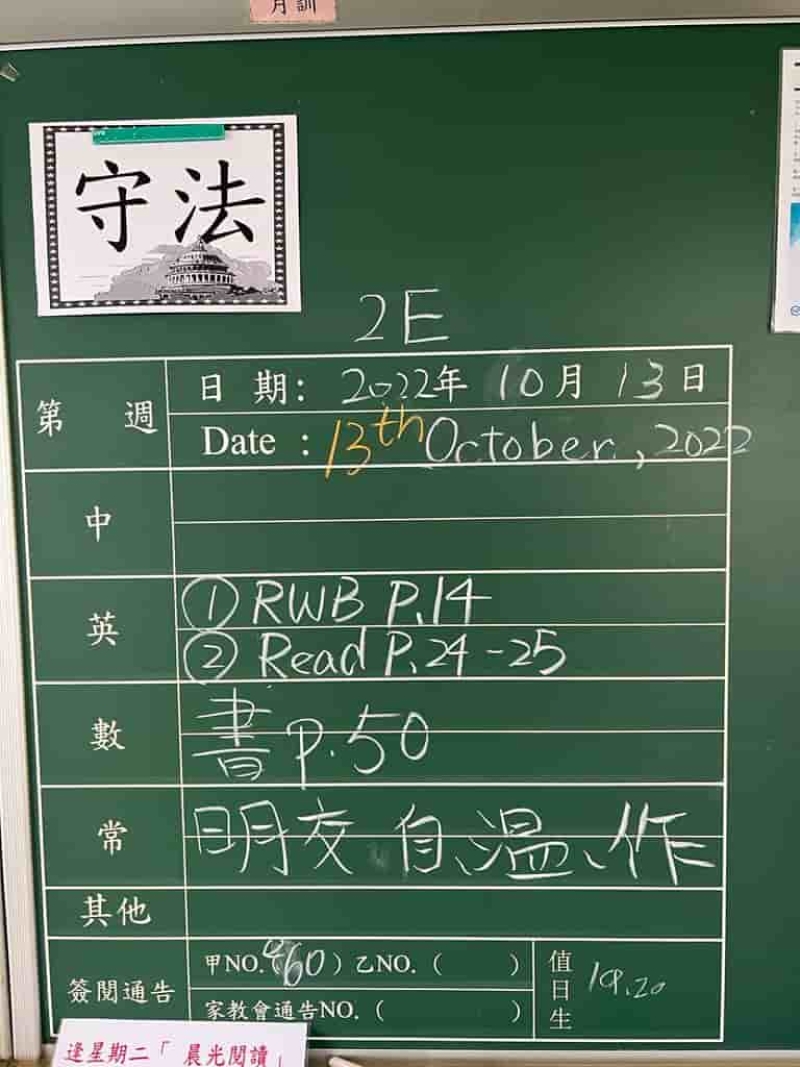 月訓
守法
2E
第 週
日 期: 2022年 10月 13日
Date : 13th October, 2022
中
英
① RWB P.14
② Read P.24-25
數
書 P.50
常
明交 自、溫、作
其他
簽閱通告
甲NO.(060) 乙NO. ( )
家教會通告NO. ( )
值日生
19.20
逢星期二「晨光閱讀」